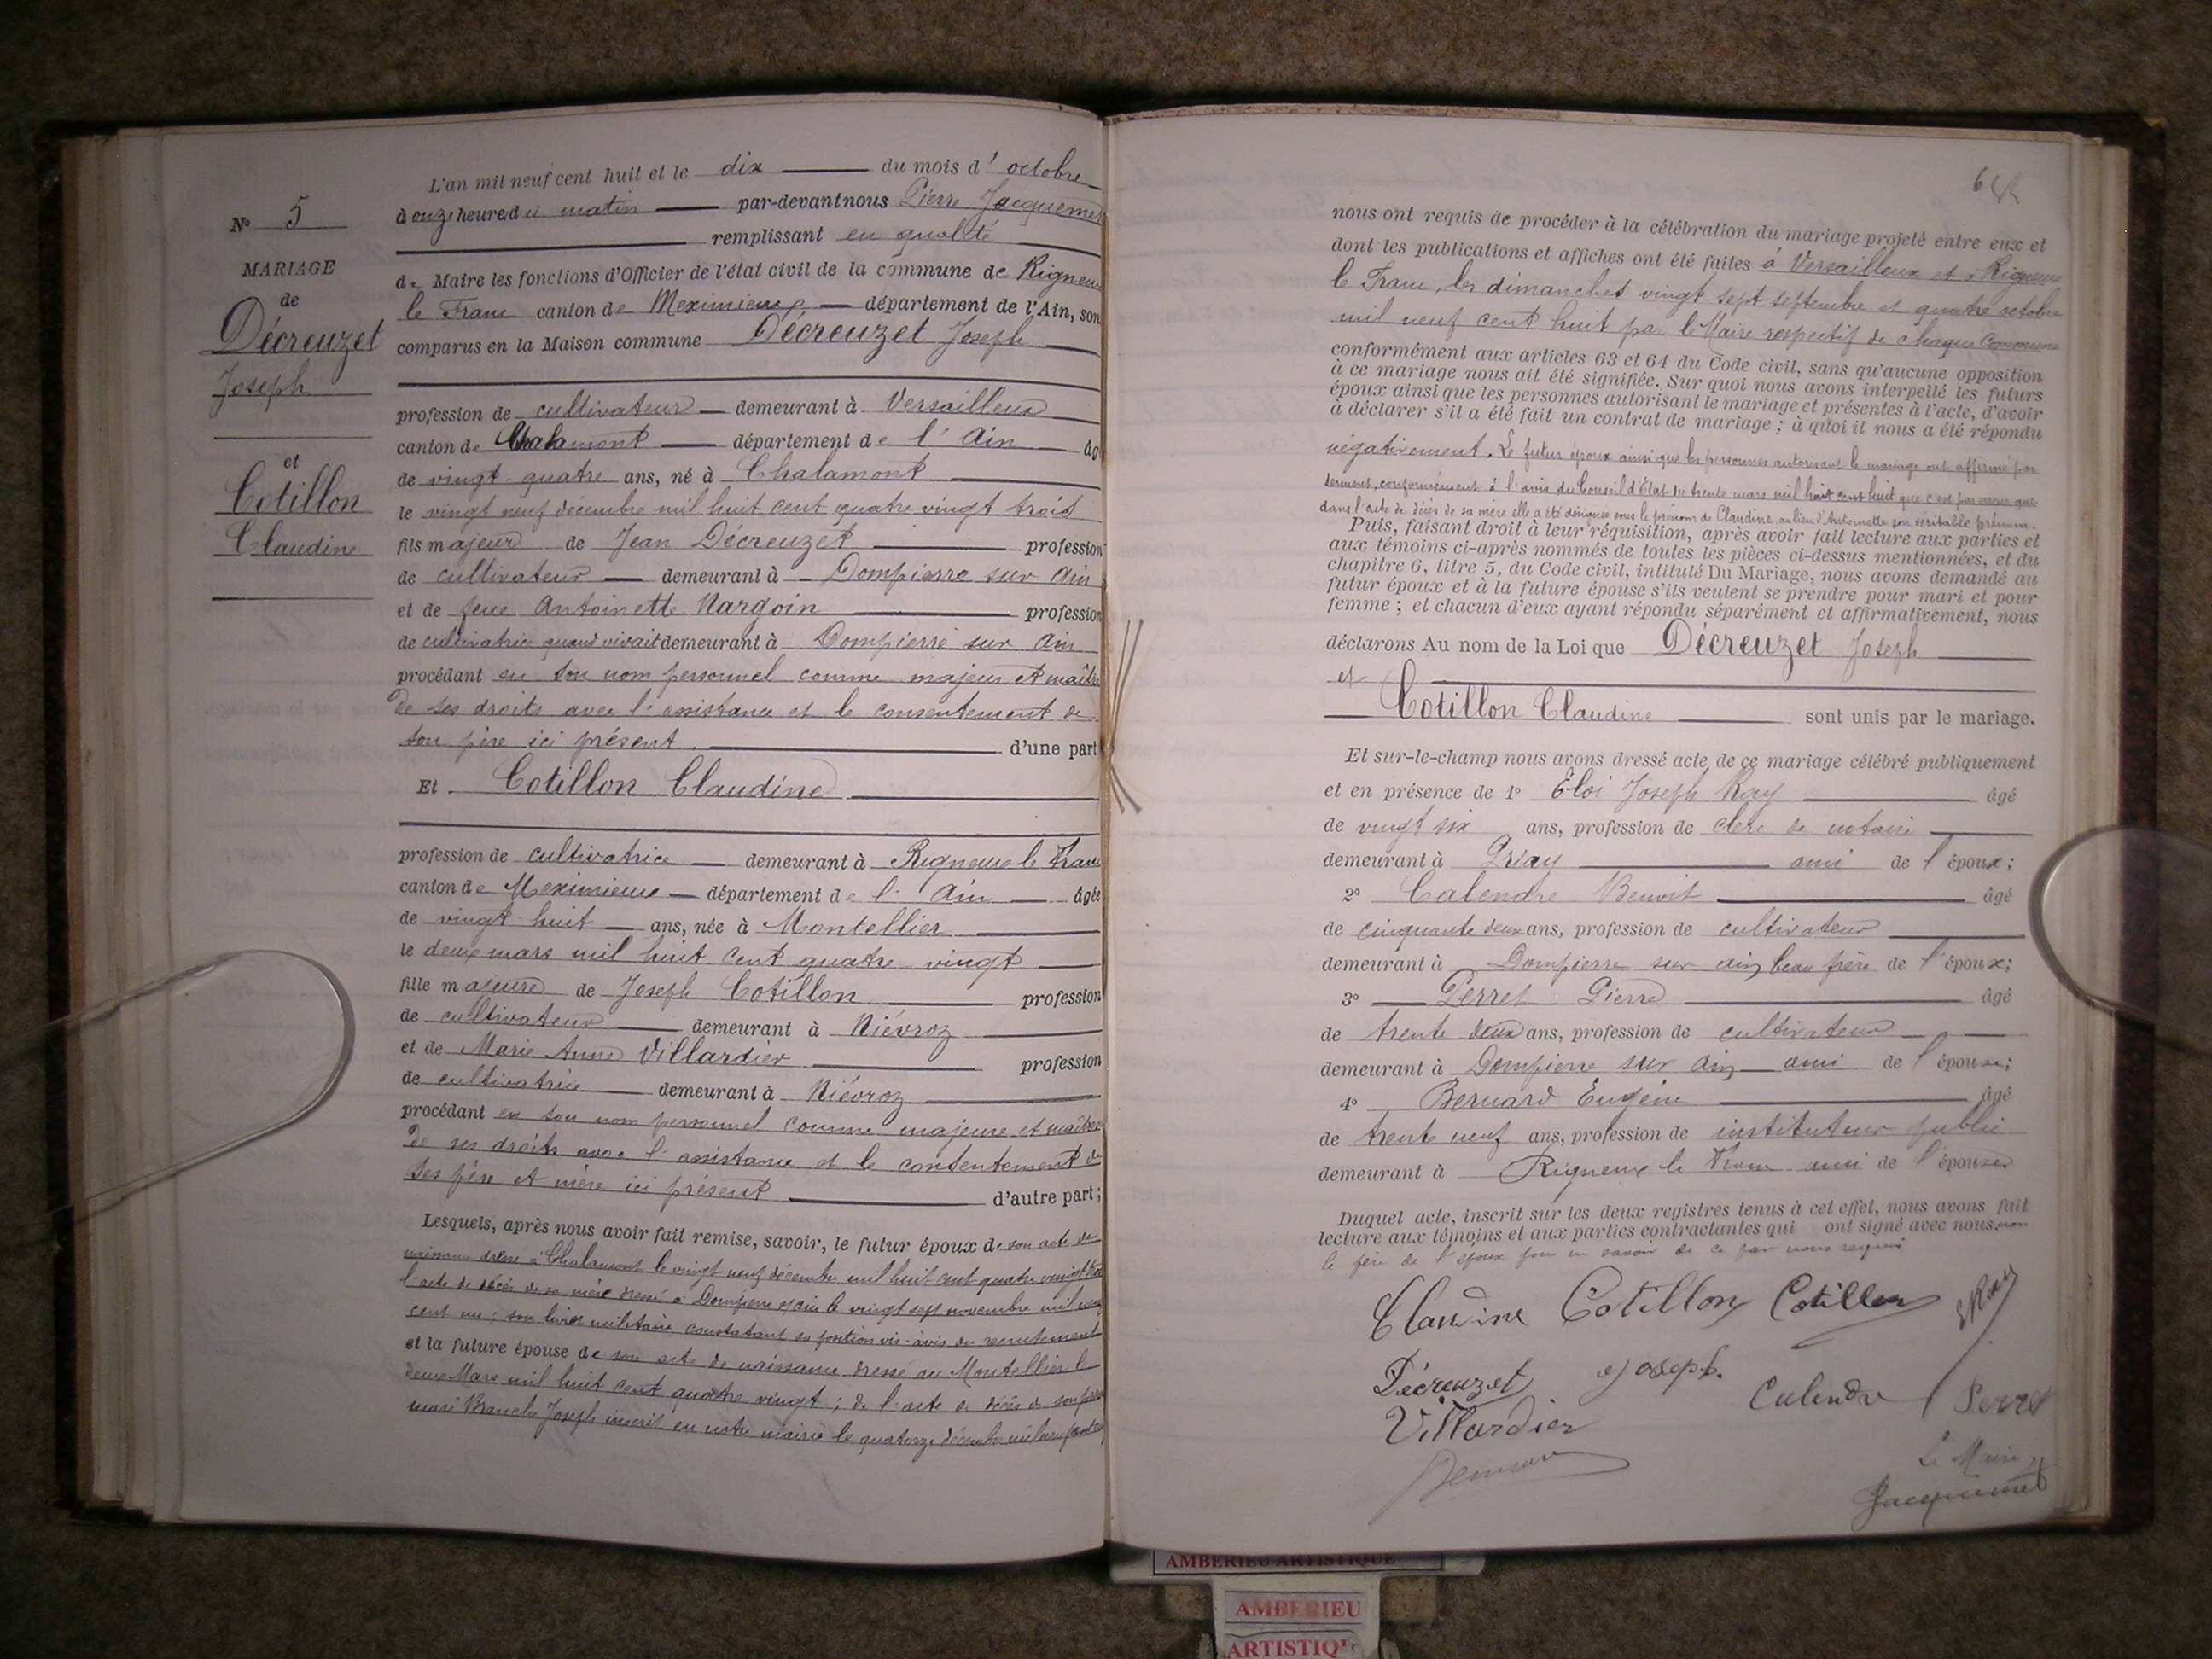 N° 5
MARIAGE
de
Décreuzet
Joseph
et
Cotillon
Claudine
L'an mil neuf cent huit et le dix du mois d'octobre
à onze heures du matin par-devant nous Pierre Jacquemet
remplissant en qualité
de Maire les fonctions d'Officier de l'état civil de la commune de Rigneux
le Franc canton de Meximieux département de l'Ain, son
comparus en la Maison commune Décreuzet Joseph
profession de cultivateur demeurant à Versailleux
canton de Chalamont département de l'Ain âgé
de vingt-quatre ans, né à Chalamont
le vingt neuf décembre mil huit cent quatre vingt trois
fils majeur de Jean Décreuzet profession
de cultivateur demeurant à Dompierre sur Ain
et de feue Antoinette Nargoin profession
de cultivatrice quand vivait demeurant à Dompierre sur Ain
procédant en son nom personnel comme majeur et maître
de ses droits avec l'assistance et le consentement de
son père ici présent. d'une part
Et Cotillon Claudine
profession de cultivatrice demeurant à Rigneux le Franc
canton de Meximieux département de l'Ain âgée
de vingt-huit ans, née à Montellier
le deux mars mil huit cent quatre vingt
fille majeure de Joseph Cotillon profession
de cultivateur demeurant à Niévroz
et de Marie Anne Villardier profession
de cultivatrice demeurant à Niévroz
procédant en son nom personnel comme majeure et maîtresse
de ses droits avec l'assistance et le consentement de
ses père et mère ici présent d'autre part;
Lesquels, après nous avoir fait remise, savoir, le futur époux de son acte de
naissance dressé à Chalamont le vingt neuf décembre mil huit cent quatre vingt trois
l'acte de décès de sa mère dressé à Dompierre s/ain le vingt sept novembre mil neuf
cent un; son livret militaire constatant sa position vis-à-vis du recrutement
et la future épouse de son acte de naissance dressé au Montellier le
deux Mars mil huit cent quatre vingt; de l'acte de décès de son
mari Branche Joseph inscrit en notre mairie le quatorze décembre mil neuf cent
nous ont requis de procéder à la célébration du mariage projeté entre eux et
dont les publications et affiches ont été faites à Versailleux et à Rigneux
le Franc, les dimanches vingt-sept septembre et quatre octobre
mil neuf cent huit par le Maire respectif de chaque commune
conformément aux articles 63 et 64 du Code civil, sans qu'aucune opposition
à ce mariage nous ait été signifiée. Sur quoi nous avons interpellé les futurs
époux ainsi que les personnes autorisant le mariage et présentes à l'acte, d'avoir
à déclarer s'il a été fait un contrat de mariage; à quoi il nous a été répondu
négativement. Le futur époux ainsi que les personnes autorisant le mariage ont affirmé par
serment, conformément à l'avis du Conseil d'État du trente mars mil huit cent huit que c'est par erreur que
dans l'acte de décès de sa mère elle a été désignée sous le prénom de Claudine au lieu d'Antoinette son véritable prénom.
Puis, faisant droit à leur réquisition, après avoir fait lecture aux parties et
aux témoins ci-après nommés de toutes les pièces ci-dessus mentionnées, et du
chapitre 6, titre 5, du Code civil, intitulé Du Mariage, nous avons demandé au
futur époux et à la future épouse s'ils veulent se prendre pour mari et pour
femme; et chacun d'eux ayant répondu séparément et affirmativement, nous
déclarons Au nom de la Loi que Décreuzet Joseph
et
Cotillon Claudine sont unis par le mariage.
Et sur-le-champ nous avons dressé acte de ce mariage célébré publiquement
et en présence de 1° Eloi Joseph Ray âgé
de vingt six ans, profession de clerc de notaire
demeurant à Priay ami de l'époux;
2° Calendre Benoit âgé
de cinquante deux ans, profession de cultivateur
demeurant à Dompierre sur ain, beau frère de l'époux;
3° Perret Pierre âgé
de trente deux ans, profession de cultivateur
demeurant à Dompierre sur Ain ami de l'épouse;
4° Bernard Eugène âgé
de trente neuf ans, profession de instituteur public
demeurant à Rigneux le Franc ami de l'épouse
Duquel acte, inscrit sur les deux registres tenus à cet effet, nous avons fait
lecture aux témoins et aux parties contractantes qui ont signé avec nous non
le père de l'époux pour ne savoir de ce par nous requis
Claudine Cotillon Cotillon E Ray
Décreuzet Joseph. Calendre Perret
Villardier
Bernard
Le Maire,
Jacquemet
AMBERIEU ARTISTIQUE
AMBERIEU
ARTISTIQ